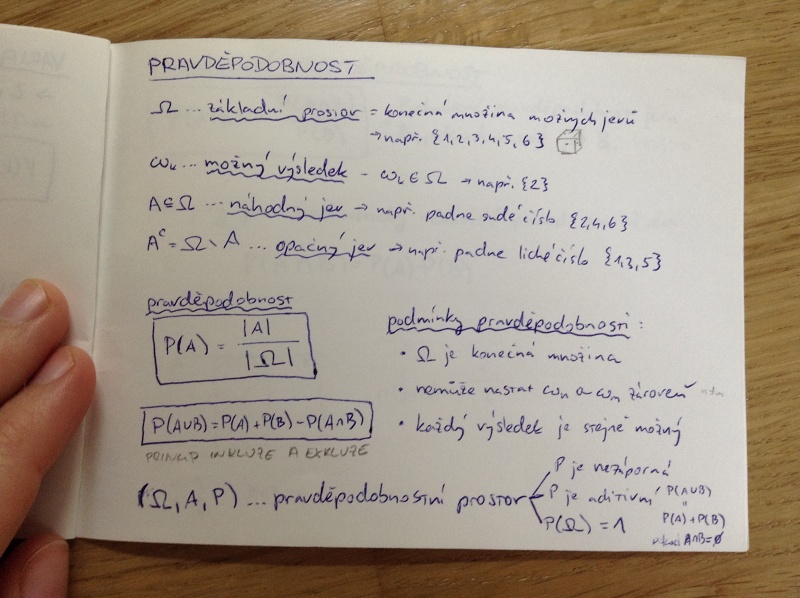 PRAVDĚPODOBNOST
Ω ... základní prostor = konečná množina možných jevů
→ např. {1,2,3,4,5,6}
ωₖ ... možný výsledek - ωₖ ∈ Ω → např. {2}
A⊆Ω ... náhodný jev → např. padne sudé číslo {2,4,6}
Aᶜ = Ω \ A ... opačný jev → např. padne liché číslo {1,3,5}
pravděpodobnost
P(A) = |A| / |Ω|
P(A∪B) = P(A) + P(B) - P(A∩B)
PRINCIP INKLUZE A EXKLUZE
podmínky pravděpodobnosti:
• Ω je konečná množina
• nemůže nastat ωₙ a ωₘ zároveň
• každý výsledek je stejně možný
(Ω, A, P) ... pravděpodobnostní prostor
P je nezáporná
P je aditivní P(A∪B)
=
P(A)+P(B)
A∩B=∅
P(Ω) = 1